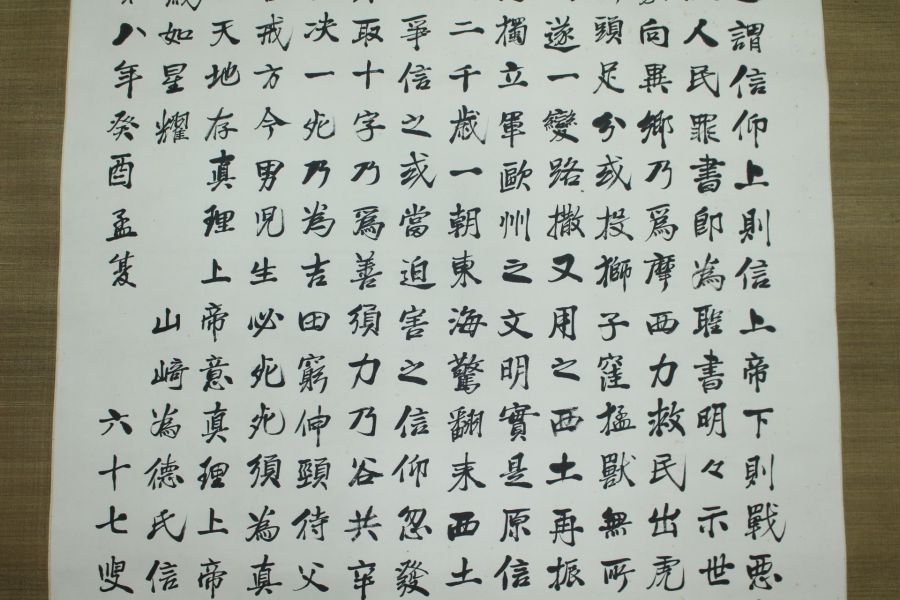 謂信仰上則信上帝下則戰悪
人民罪書即為聖書明々示世
向異郷乃爲摩西力救民出虎
頭足分或投獅子窪猛獸無所
遂一變路撒又用之西土再振
獨立軍歐州之文明實是原信
二千歳一朝東海驚翻末西土
爭信之或當迫害之信仰忽發
取十字乃爲善須力乃谷共宰
决一死乃為吉田窮伸頸待父
戒方今男児生必死死須為真
天地存真理上帝意真理上帝
如星耀 山崎為德氏信
八年癸酉孟夏 六十七叟